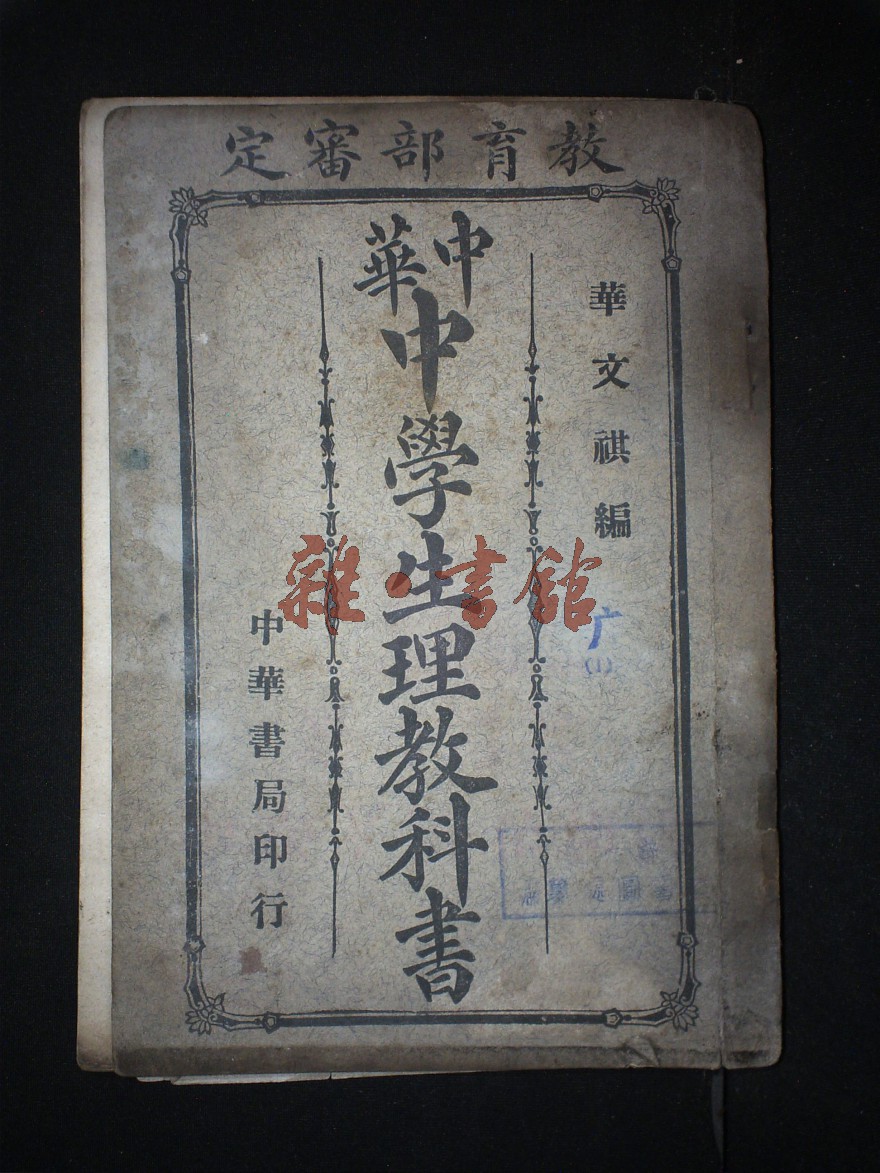 教育部審定
華文祺編
中華
中學生理教科書
中華書局印行
雜·書館
广
(1)